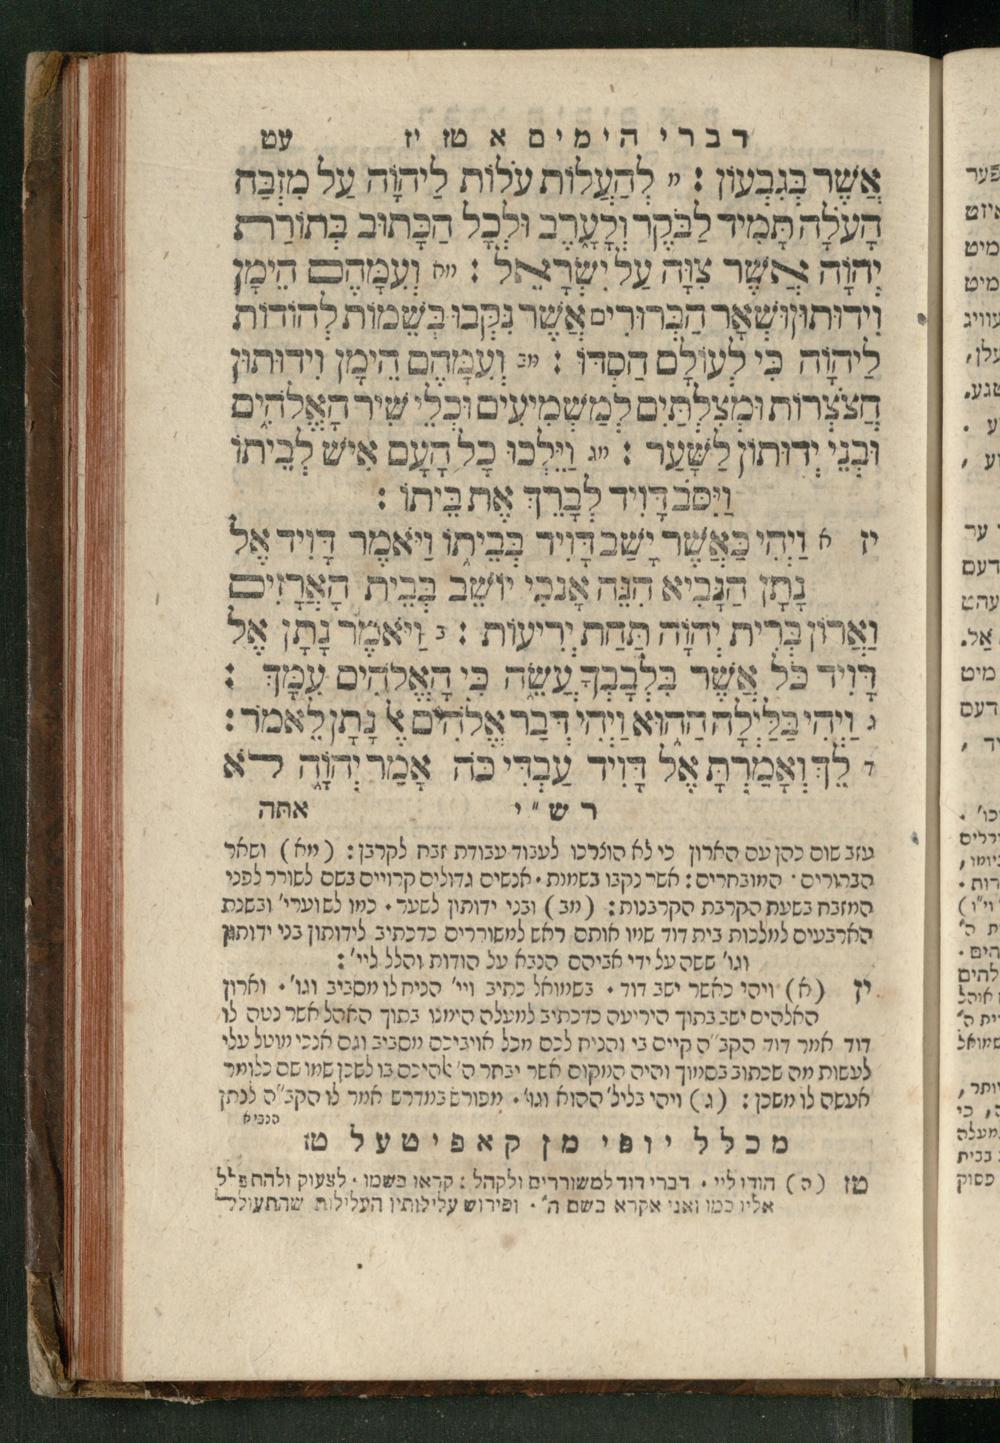 דברי הימים א טז יז עט
אֲשֶׁר בְּגִבְעוֹן : מ לְהַעֲלוֹת עֹלוֹת לַיהוָֹה עַל מִזְבַּח
הָעֹלָה תָּמִיד לַבֹּקֶר וְלָעָרֶב וּלְכָל הַכָּתוּב בְּתוֹרַת
יְהוָֹה אֲשֶׁר צִוָּה עַל יִשְׂרָאֵל : מא וְעִמָּהֶם הֵימָן
וִידוּתוּן וּשְׁאָר הַבְּרוּרִים אֲשֶׁר נִקְּבוּ בְּשֵׁמוֹת לְהוֹדוֹת
לַיהוָֹה כִּי לְעוֹלָם חַסְדּוֹ : מב וְעִמָּהֶם הֵימָן וִידוּתוּן
חֲצֹצְרוֹת וּמְצִלְתַּיִם לְמַשְׁמִיעִים וּכְלֵי שִׁיר הָאֱלֹהִים
וּבְנֵי יְדוּתוּן לַשָּׁעַר : מג וַיֵּלְכוּ כָל הָעָם אִישׁ לְבֵיתוֹ
וַיִּסֹּב דָּוִיד לְבָרֵךְ אֶת בֵּיתוֹ :
יז א וַיְהִי כַּאֲשֶׁר יָשַׁב דָּוִיד בְּבֵיתוֹ וַיֹּאמֶר דָּוִיד אֶל
נָתָן הַנָּבִיא הִנֵּה אָנֹכִי יוֹשֵׁב בְּבֵית הָאֲרָזִים
וַאֲרוֹן בְּרִית יְהוָֹה תַּחַת יְרִיעוֹת : ב וַיֹּאמֶר נָתָן אֶל
דָּוִיד כֹּל אֲשֶׁר בִּלְבָבְךָ עֲשֵׂה כִּי הָאֱלֹהִים עִמָּךְ :
ג וַיְהִי בַּלַּיְלָה הַהוּא וַיְהִי דְּבַר אֱלֹהִים אֶל נָתָן לֵאמֹר :
ד לֵךְ וְאָמַרְתָּ אֶל דָּוִיד עַבְדִּי כֹּה אָמַר יְהוָֹה לֹא
רש"י אתה
עזב שום כהן עם הארון כי לא הוצרכו לעבוד עבודת זבח לקרבן : (מא) ושאר
הברורים · המובחרים : אשר נקבו בשמות · אנשים גדולים קרויים בשם לשורר לפני
המזבח בשעת הקרבת הקרבנות : (מב) ובני ידותון לשער · כמו לשוערי' ובשנת
הארבעים למלכות בית דוד שמו אותם ראש למשוררים כדכתיב לידותון בני ידותון
וגו' ששה על ידי אביהם הנבא על הודות והלל ליי' :
יז (א) ויהי כאשר ישב דוד · בשמואל כתיב ויי' הניח לו מסביב וגו' · וארון
האלהים ישב בתוך היריעה כדכתיב למעלה הימנו בתוך האהל אשר נטה לו
דוד אמר דוד הקב"ה קיים בי והניח לכם מכל אויביכם מסביב וגם אנכי מוטל עלי
לעשות מה שכתוב בסמוך והיה המקום אשר יבחר ה' אלהיכם בו לשכן שמו שם כלומר
אעשה לו משכן : (ג) ויהי בליל' ההוא וגו' · מפורש במדרש אמר לו הקב"ה לנתן
הנביא
מכלל יופי מן קאפיטעל טז
טז (ח) הודו ליי · דברי דוד למשוררים ולקהל : קראו בשמו · לצעוק ולהתפלל
אליו כמו ואני אקרא בשם ה' · ופירוש עלילותיו העלילות שהתעולל